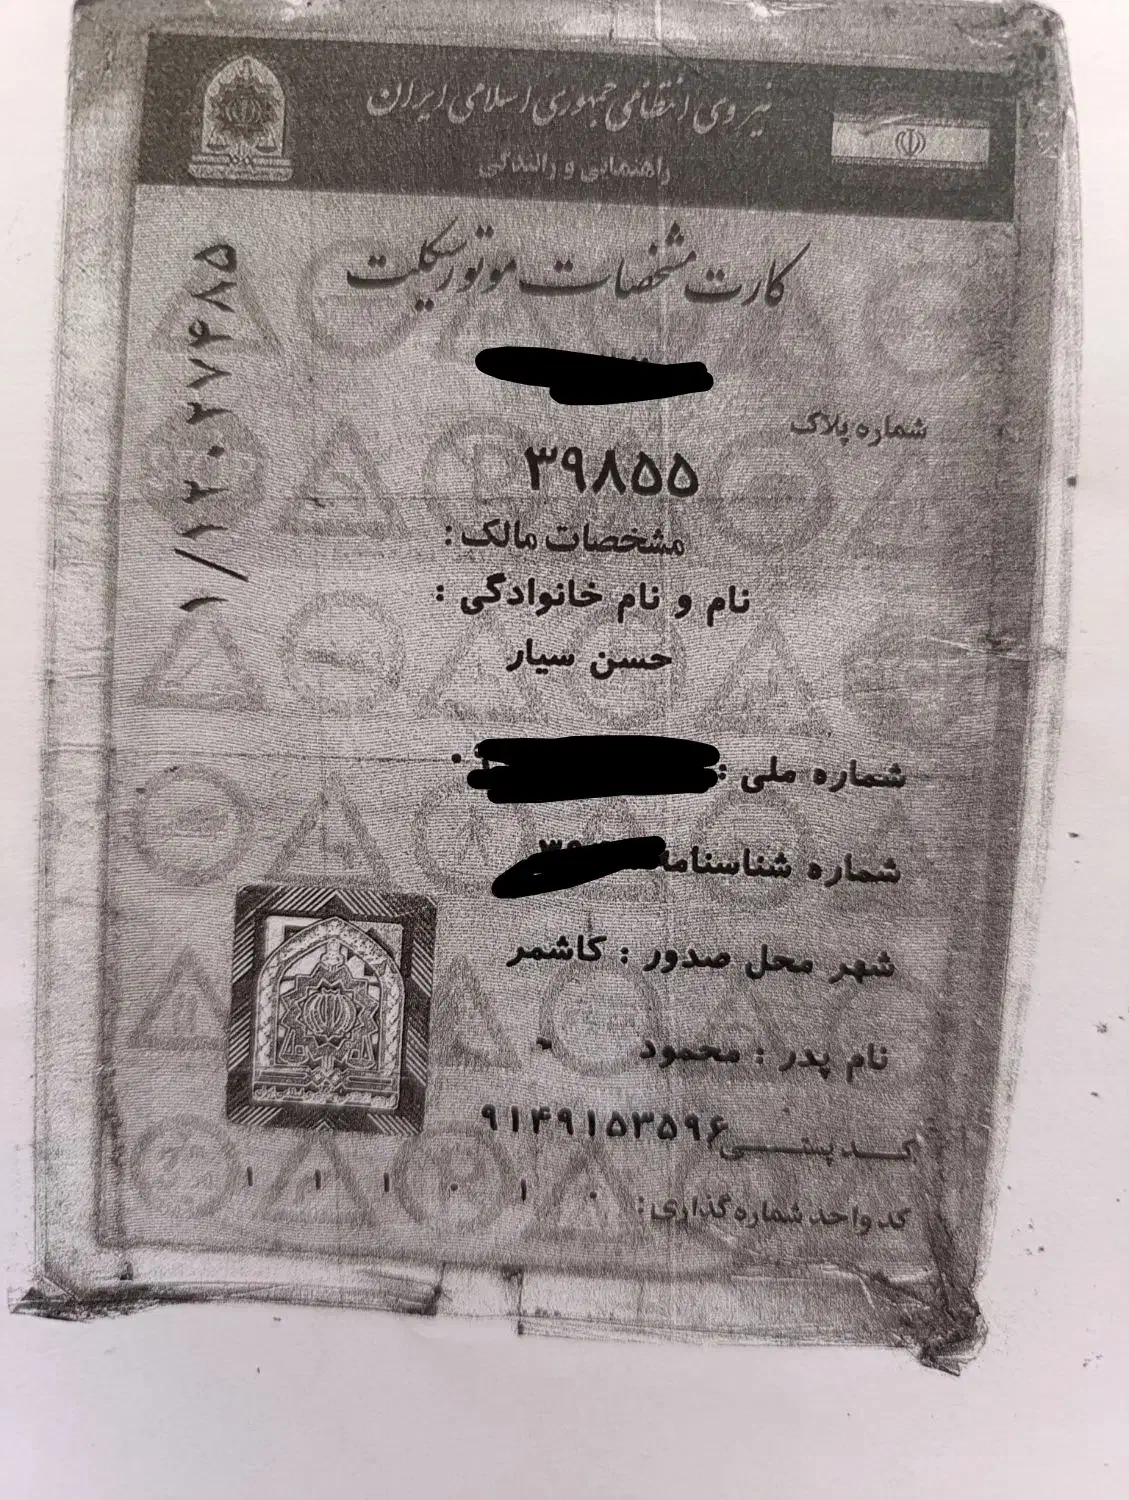 نیروی انتظامی جمهوری اسلامی ایران
راهنمایی و رانندگی
کارت مشخصات موتورسیکلت
شماره پلاک
۳۹۸۵۵
مشخصات مالک:
نام و نام خانوادگی :
حسن سیار
شماره ملی :
شماره شناسنامه
شهر محل صدور : کاشمر
نام پدر : محمود -
کد پستی ۹۱۴۹۱۵۳۵۹۶
کد واحد شماره گذاری: ۱ ۱ ۱ ۰ ۱ ۰
۱/۱۲۰۲۷۴۸۵